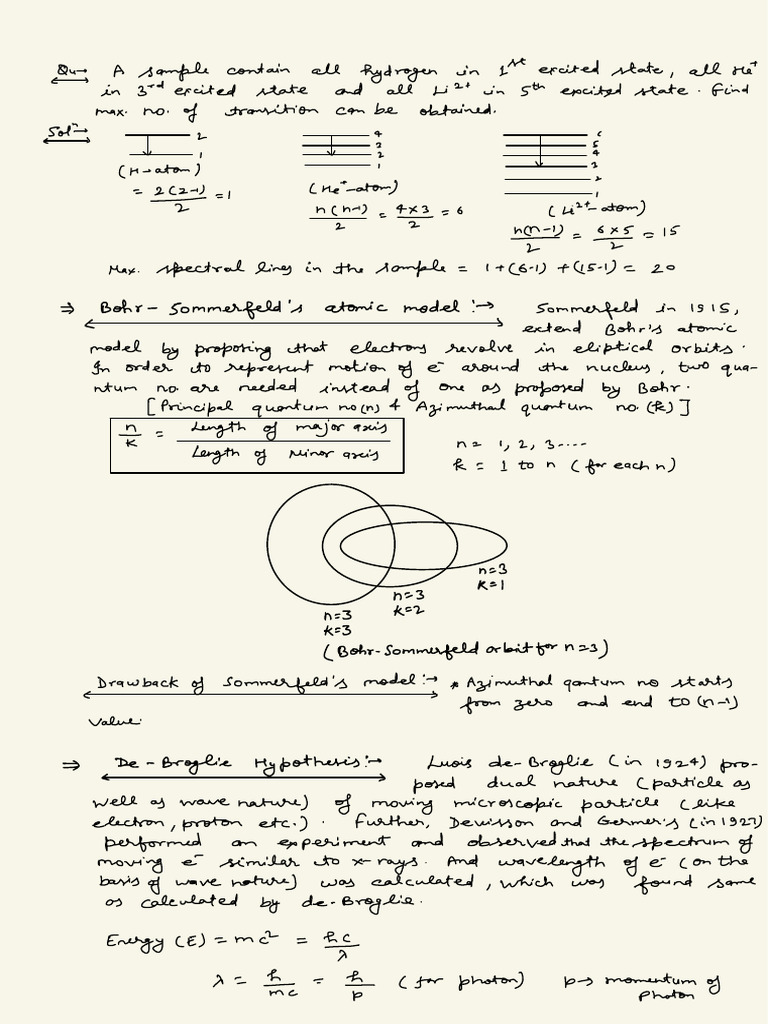 Qu→ A sample contain all hydrogen in 1st excited state, all He+
in 3rd excited state and all Li2+ in 5th excited state. Find
max. no. of transition can be obtained.
Soln→
2
1
(H-atom)
= 2(2-1)/2 = 1
4
3
2
1
(He+-atom)
n(n-1)/2 = 4×3/2 = 6
6
5
4
3
2
1
(Li2+-atom)
n(n-1)/2 = 6×5/2 = 15
Max. spectral lines in the sample = 1+(6-1)+(15-1) = 20
⇒ Bohr-Sommerfeld's atomic model :→ Sommerfeld in 1915,
extend Bohr's atomic
model by proposing that electrons revolve in eliptical orbits.
In order to represent motion of e- around the nucleus, two qua-
ntum no. are needed instead of one as proposed by Bohr.
[Principal quantum no(n) & Azimuthal quantum no. (k)]
n/k = Length of major axis / Length of Minor axis
n = 1, 2, 3....
k = 1 to n (for each n)
n=3
k=1
n=3
k=2
n=3
k=3
(Bohr-Sommerfeld orbit for n=3)
Drawback of Sommerfeld's model :→ * Azimuthal qantum no starts
from zero and end to (n-1)
value.
⇒ De-Broglie Hypothesis :→ Luois de-Broglie (in 1924) pro-
posed dual nature (particle as
well as wave nature) of moving microscopic particle (like
electron, proton etc.). Further, Devisson and Germer's (in 1927)
performed an experiment and observed that the spectrum of
moving e- similar to x-rays. And wavelength of e- (on the
basis of wave nature) was calculated, which was found same
as calculated by de-Broglie.
Energy (E) = mc2 = hc/λ
λ = h/mc = h/p (for photon) p→ momentum of
photon